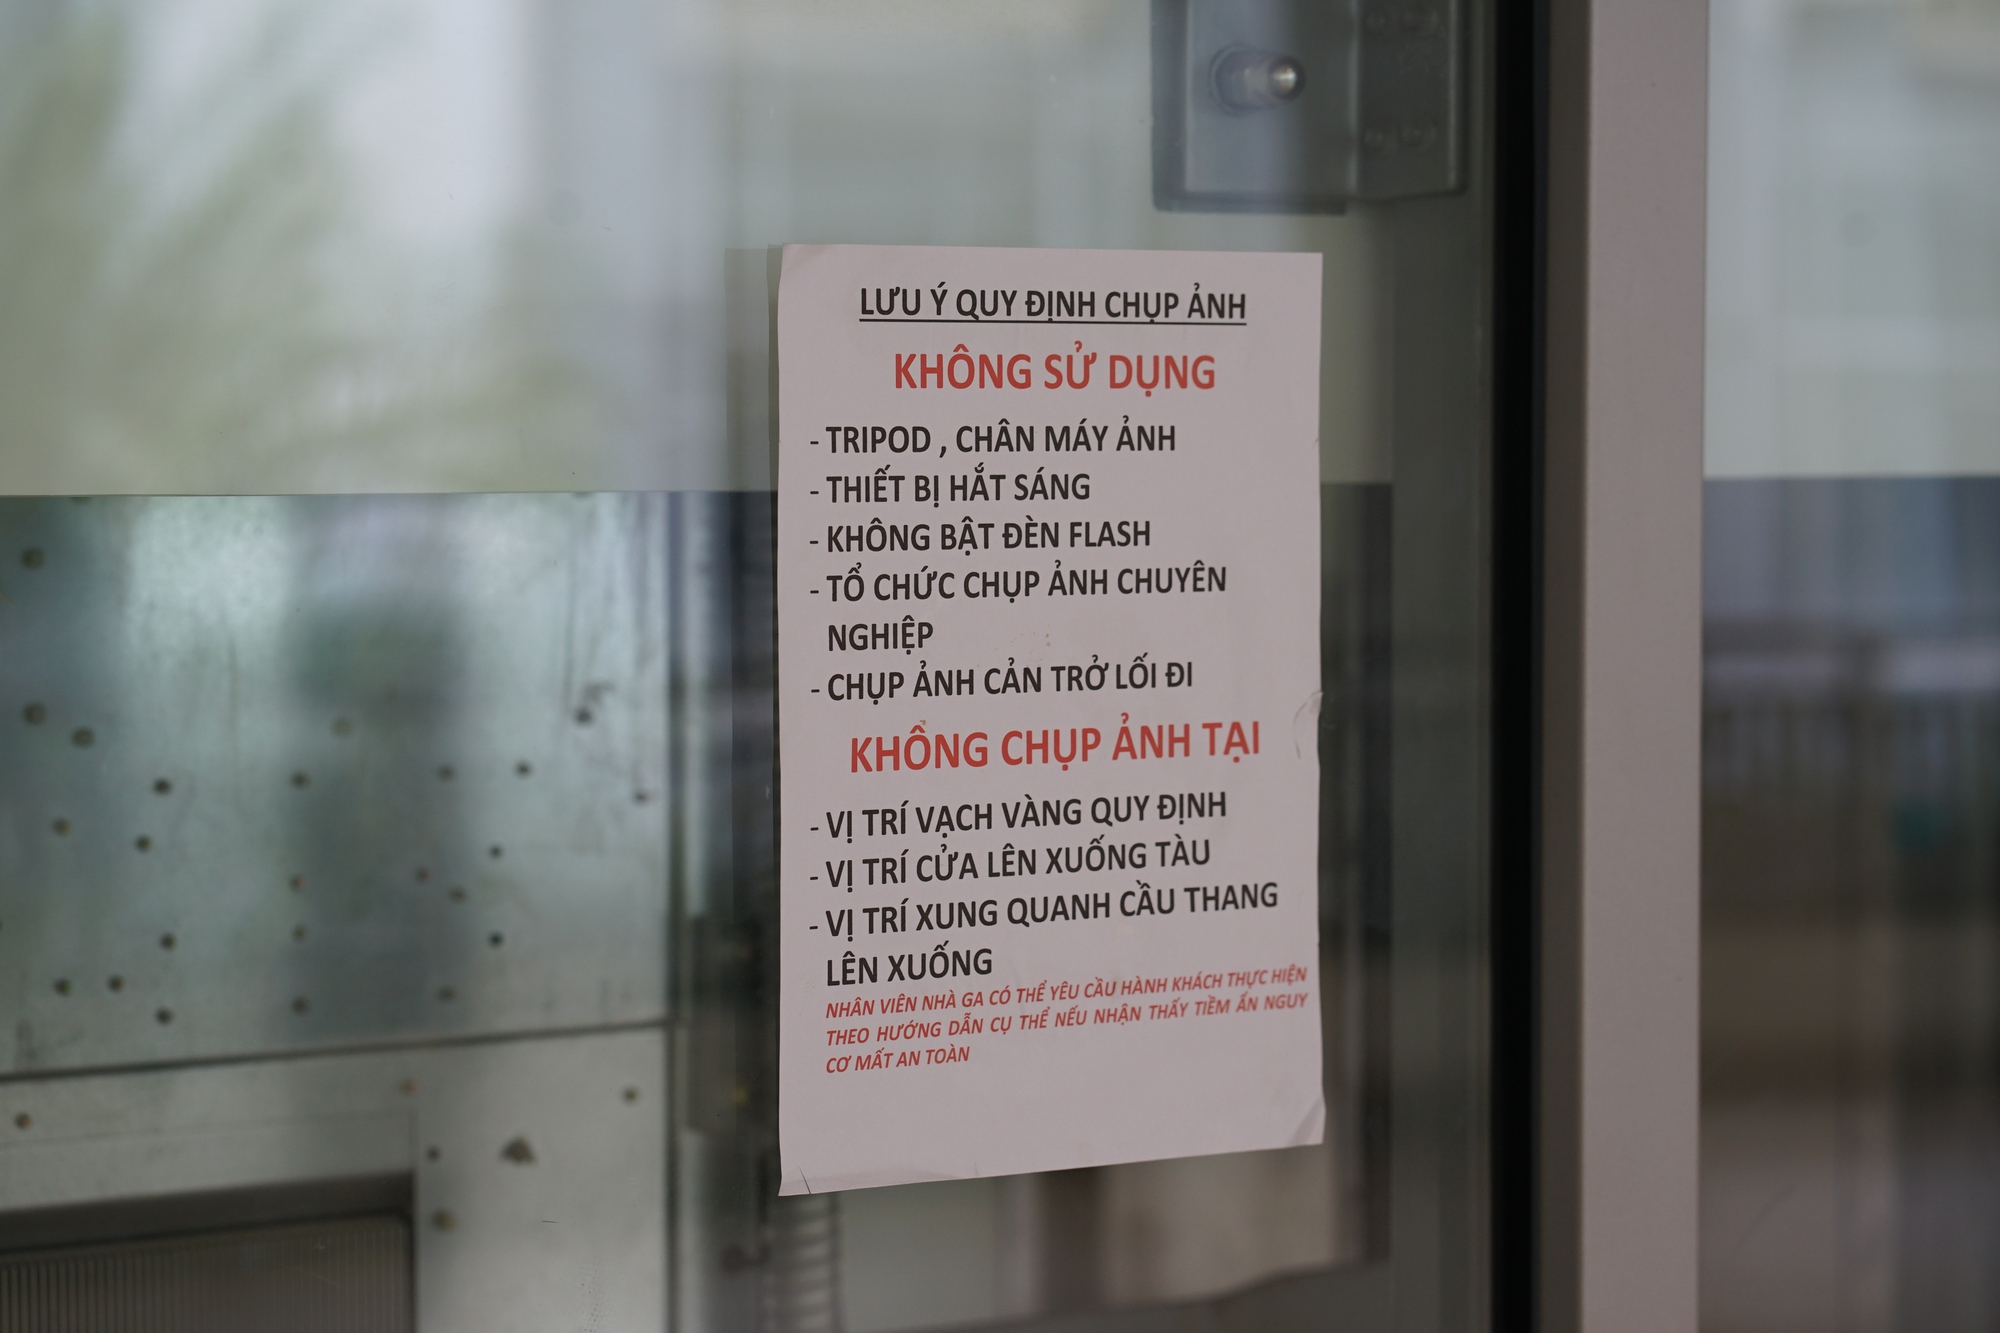 LƯU Ý QUY ĐỊNH CHỤP ẢNH
KHÔNG SỬ DỤNG
- TRIPOD , CHÂN MÁY ẢNH
- THIẾT BỊ HẮT SÁNG
- KHÔNG BẬT ĐÈN FLASH
- TỔ CHỨC CHỤP ẢNH CHUYÊN
NGHIỆP
- CHỤP ẢNH CẢN TRỞ LỐI ĐI
KHÔNG CHỤP ẢNH TẠI
- VỊ TRÍ VẠCH VÀNG QUY ĐỊNH
- VỊ TRÍ CỬA LÊN XUỐNG TÀU
- VỊ TRÍ XUNG QUANH CẦU THANG
LÊN XUỐNG
NHÂN VIÊN NHÀ GA CÓ THỂ YÊU CẦU HÀNH KHÁCH THỰC HIỆN
THEO HƯỚNG DẪN CỤ THỂ NẾU NHẬN THẤY TIỀM ẨN NGUY
CƠ MẤT AN TOÀN